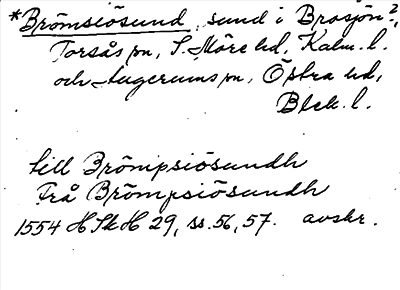 *Brömsiösund, sund i Brosjön?,
Torsås sn, S. Möre hd, Kalm. l.
och Augerums sn, Östra hd,
Blek. l.
till Brömpsiösundh
Frå Brömpsiösundh
1554 HSkH 29, ss. 56, 57. avskr.